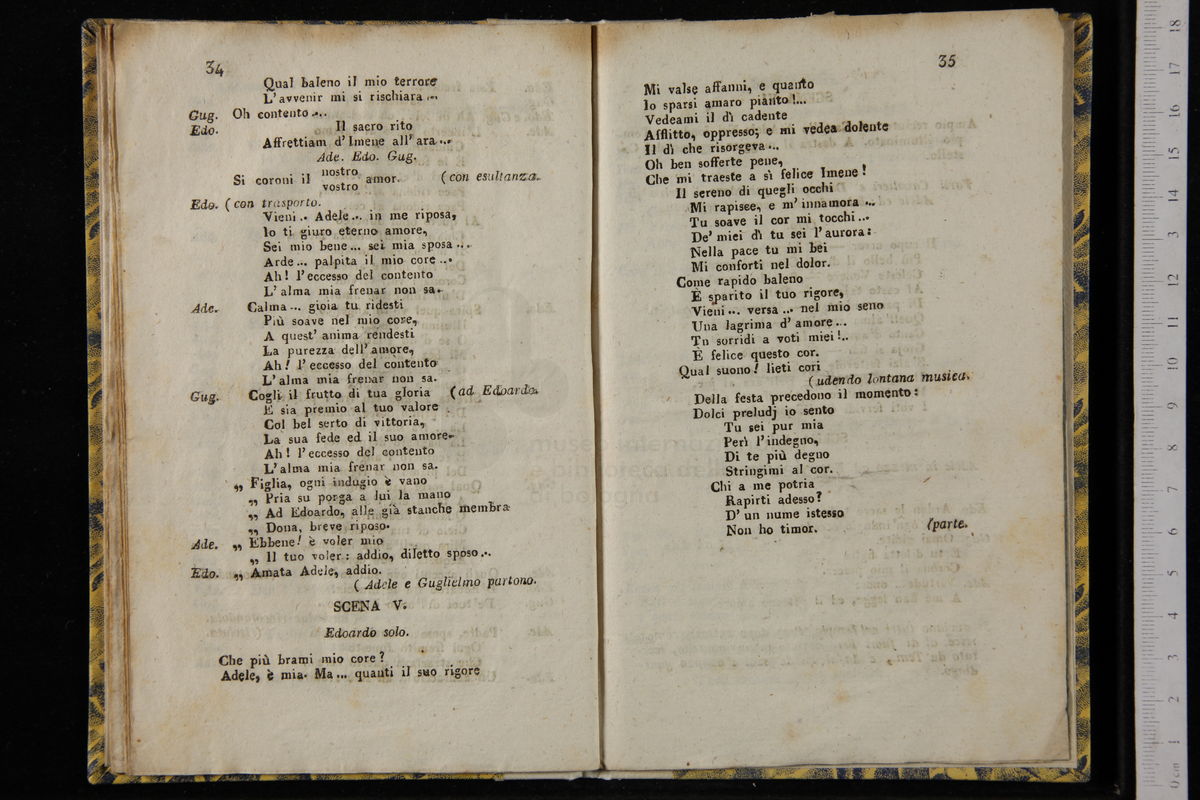 34
Qual baleno il mio terrore
L'avvenir mi si rischiara ...
Gug. Oh contento ...
Edo. Il sacro rito
Affrettiam d'Imene all'ara ...
Ade. Edo. Gug.
Si coroni il nostro vostro amor. (con esultanza.
Edo. (con trasporto.
Vieni .. Adele ... in me riposa,
Io ti giuro eterno amore,
Sei mio bene ... sei mia sposa ...
Arde ... palpita il mio core ...
Ah! l'eccesso del contento
L'alma mia frenar non sa.
Ade. Calma ... gioia tu ridesti
Più soave nel mio core,
A quest'anima rendesti
La purezza dell'amore,
Ah! l'eccesso del contento
L'alma mia frenar non sa.
Gug. Cogli il frutto di tua gloria (ad Edoardo.
E sia premio al tuo valore
Col bel serto di vittoria,
La sua fede ed il suo amore.
Ah! l'eccesso del contento
L'alma mia frenar non sa.
„ Figlia, ogni indugio è vano
„ Pria su porga a lui la mano
„ Ad Edoardo, alle già stanche membra
„ Dona, breve riposo.
Ade. „ Ebbene! è voler mio
„ Il tuo voler: addio, diletto sposo ..
Edo. „ Amata Adele, addio.
(Adele e Guglielmo partono.
SCENA V.
Edoardo solo.
Che più brami mio core?
Adele, è mia. Ma ... quanti il suo rigore
35
Mi valse affanni, e quanto
Io sparsi amaro pianto!...
Vedeami il dì cadente
Afflitto, oppresso; e mi vedea dolente
Il dì che risorgeva ...
Oh ben sofferte pene,
Che mi traeste a sì felice Imene!
Il sereno di quegli occhi
Mi rapisce, e m'innamora ...
Tu soave il cor mi tocchi ...
De' miei dì tu sei l'aurora:
Nella pace tu mi bei
Mi conforti nel dolor.
Come rapido baleno
È sparito il tuo rigore,
Vieni ... versa ... nel mio seno
Una lagrima d'amore ...
Tu sorridi a voti miei!..
È felice questo cor.
Qual suono! lieti cori
(udendo lontana musica.
Della festa precedono il momento:
Dolci preludj io sento
Tu sei pur mia
Perì l'indegno,
Di te più degno
Stringimi al cor.
Chi a me potria
Rapirti adesso?
D'un nume istesso
Non ho timor. (parte.